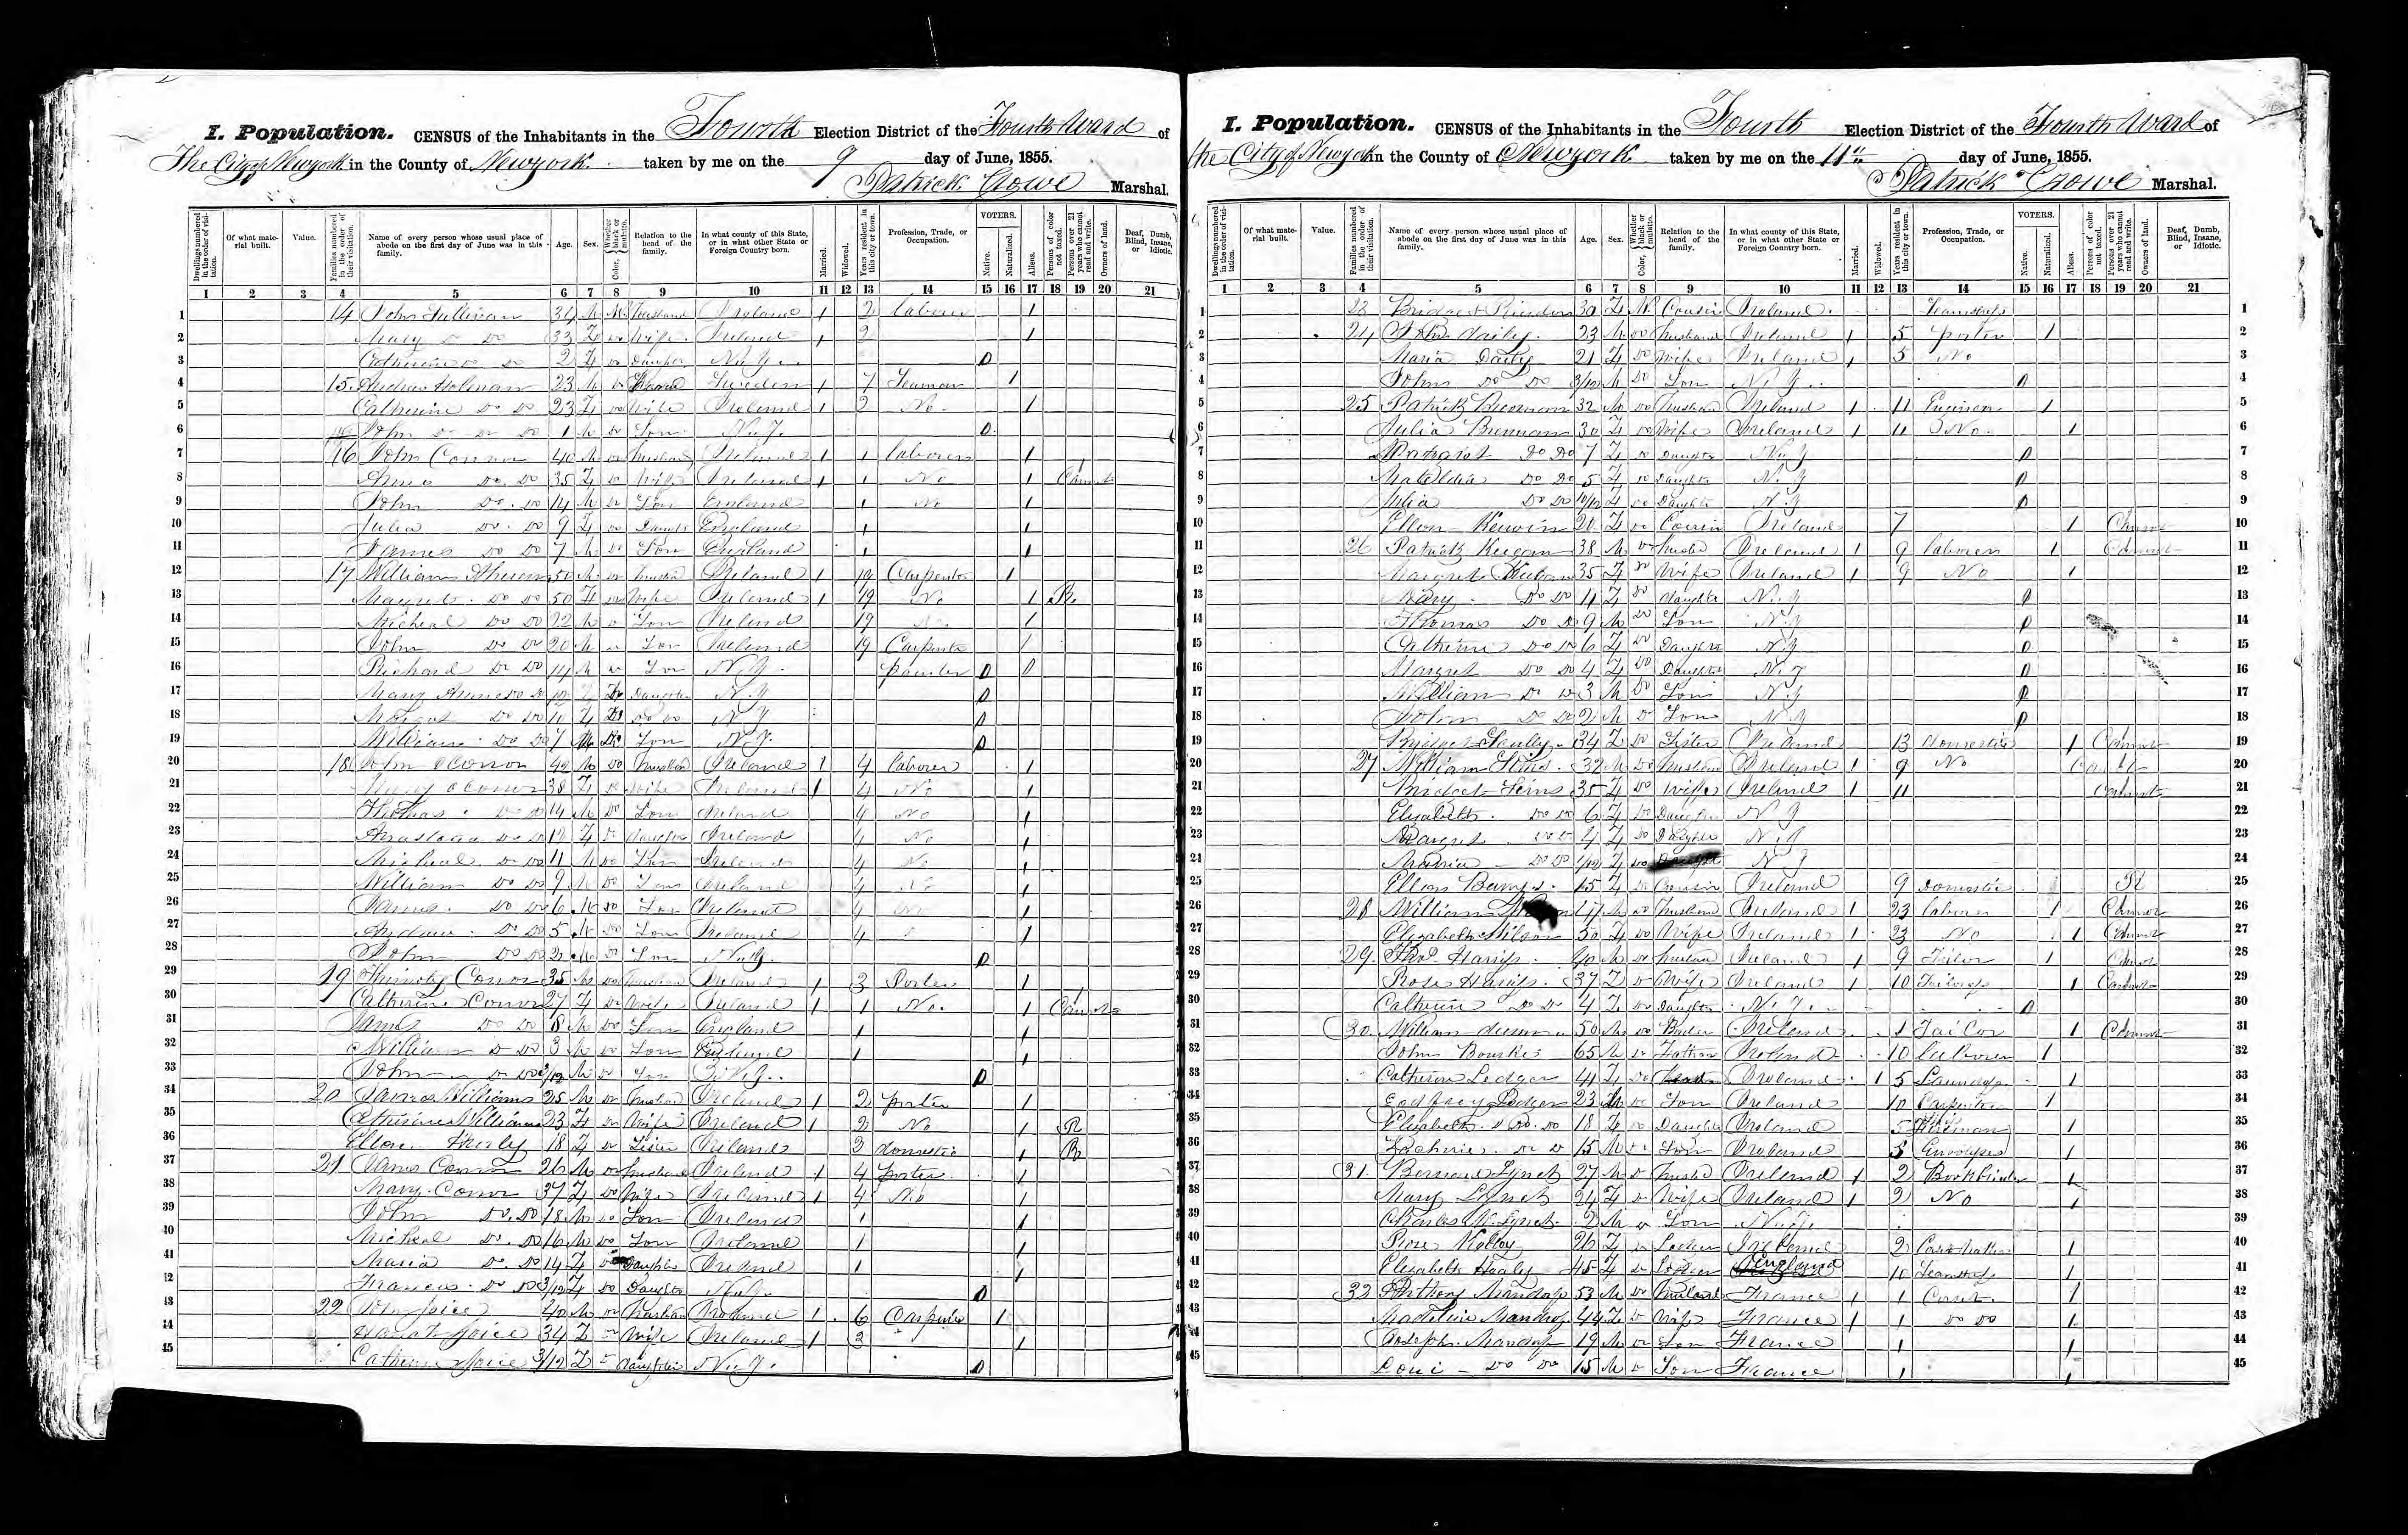 I. Population. CENSUS of the Inhabitants in the Fourth Election District of the Fourth Ward of
The City of Newyork in the County of Newyork taken by me on the 9 day of June, 1855.
Patrick Crowe Marshal.
Dwellings numbered in the order of visitation. Of what material built. Value. Families numbered in the order of their visitation. Name of every person whose usual place of abode on the first day of June was in this family. Age. Sex. Color, Whether black or mulatto. Relation to the head of the family. In what county of this State, or in what other State or Foreign Country born. Married. Widowed. Years resident in this city or town. Profession, Trade, or Occupation. VOTERS. Native. Naturalized. Aliens. Persons of color not taxed. Persons over 21 years who cannot read and write. Owners of land. Deaf, Dumb, Blind, Insane, or Idiotic.
1 2 3 4 5 6 7 8 9 10 11 12 13 14 15 16 17 18 19 20 21
1 14 John Sullivan 34 M husband Ireland 1 2 laborer 1
2 Mary Do Do 33 F Do Wife Ireland 1 2 1
3 Catherine Do Do 2 F Do Daughter N.Y.
4 15 Andrew Holman 23 M Do Sweden 1 7 Seaman 1
5 Catherine Do Do 23 F Do Wife Ireland 1 2 No 1
6 John Do Do 1 M Do Son N.Y.
7 16 John Connor 40 M Do husband Ireland 1 1 laborer 1
8 Do Do 35 F Do Wife Ireland 1 1 No 1 Cannot
9 John Do Do 14 M Do Son England 1 No 1
10 Julia Do Do 9 F Do Daugh England 1 1
11 James Do Do 7 M Do Son England 1 1
12 17 William 50 M Do husba Ireland 1 19 Carpenter 1
13 Margret Do Do 50 F Do Wife Ireland 1 19 No 1 R
14 Micheal Do Do 22 M Do Son Ireland 19 1
15 John Do Do 20 M Do Son Ireland 19 Carpenter 1
16 Richard Do Do 14 M Do Son N.Y. painter
17 Mary Anne Do Do 12 Do Daughter N.Y
18 Margret Do Do 10 F Do Do Do N.Y
19 William Do Do 7 M Do Son N.Y.
20 18 John OConnor 42 M Do husband Ireland 1 4 laborer 1
21 Mary OConnor 38 F Do Wife Ireland 1 4 No 1
22 Thomas Do Do 14 M Do Son Ireland 4 No 1
23 Anastasia Do Do 12 F Do Daughter Ireland 4 No 1
24 Micheal Do Do 11 M Do Son Ireland 4 No 1
25 William Do Do 9 M Do Son Ireland 4 No 1
26 James Do Do 6 M Do Son Ireland 4 1
27 Andrew Do Do 5 M Do Son Ireland 4 1
28 John Do Do 2 M Do Son N.Y.
29 19 Thimoty Connor 35 M Do husban Ireland 1 3 Porter 1
30 Catherine Connor 27 F Do Wife Ireland 1 1 No. 1 Cannot
31 James Do Do 8 M Do Son England 1 1
32 William Do Do 3 M Do Son England 1 1
33 John Do Do M Do Son N.Y.
34 20 James Williams 25 M Do husband Ireland 1 2 porter 1
35 Catherine Williams 23 F Do Wife Ireland 1 2 No 1 R
36 Ellen 18 F Do Sister Ireland 3 domestic 1 R
37 21 James Connor 26 M Do husband Ireland 1 4 porter 1
38 Mary Connor 37 F Do Wife Ireland 1 4 No 1
39 John Do Do 18 M Do Son Ireland 1 1
40 Micheal Do Do 16 M Do Son Ireland 1 1
41 Maria Do Do 14 F Do Daughter Ireland 1 1
42 Frances Do Do 3/12 F Do Daughter N.Y.
43 22 John Joice 40 M Do husban Ireland 1 6 Carpenter 1
44 Joice 34 F Do Wife Ireland 1 2 1
45 Catherine Joice 3/12 F Daughter N.Y.
I. Population. CENSUS of the Inhabitants in the Fourth Election District of the Fourth Ward of
the City of Newyork in the County of Newyork taken by me on the 11th day of June, 1855.
Patrick Crowe Marshal.
Dwellings numbered in the order of visitation. Of what material built. Value. Families numbered in the order of their visitation. Name of every person whose usual place of abode on the first day of June was in this family. Age. Sex. Color, Whether black or mulatto. Relation to the head of the family. In what county of this State, or in what other State or Foreign Country born. Married. Widowed. Years resident in this city or town. Profession, Trade, or Occupation. VOTERS. Native. Naturalized. Aliens. Persons of color not taxed. Persons over 21 years who cannot read and write. Owners of land. Deaf, Dumb, Blind, Insane, or Idiotic.
1 2 3 4 5 6 7 8 9 10 11 12 13 14 15 16 17 18 19 20 21
1 23 Bridget 30 F Cousin Ireland
2 24 John Daily 23 M Do husband Ireland 1 5 porter 1
3 Maria Daily 21 F Do Wife Ireland 1 5 No
4 John Do Do M Do Son N.Y.
5 25 Patrick Brennan 32 M Do husban Ireland 1 11 Engineer 1
6 Julia Brennan 30 F Do Wife Ireland 1 11 No 1
7 Margret Do Do 7 F Do Daughter N.Y
8 Matildia Do Do 5 F Do Daughter N.Y
9 Julia Do Do 10/12 F Do Daughter N.Y
10 Ellen Kerwin 20 F Do Cousin Ireland 7 1 Cannot
11 26 Patrick Keegan 38 M Do husba Ireland 1 9 laborer 1 Cannot
12 Margret Keegan 35 F Do Wife Ireland 1 9 No 1
13 Mary Do Do 11 F Do daughter N.Y
14 Thomas Do Do 9 M Do Son N.Y
15 Catherine Do Do 6 F Do Daughter N.Y
16 Margret Do Do 4 F Do Daughter N.Y
17 William Do Do 3 M Do Son N.Y
18 John Do Do 2 M Do Son N.Y
19 34 F Do Sister Ireland 13 domestic 1 Cannot
20 27 William 32 M Do husband Ireland 1 9 No
21 Bridget 35 F Do Wife Ireland 1 11 Cannot
22 Elizabeth Do Do 6 F Do Daughter N.Y
23 Margret Do Do 4 F Do Daughter N.Y
24 Maria Do Do F Do N.Y
25 Ellen 15 F Do Cousin Ireland 9 Domestic R
26 28 William 47 M Do husband Ireland 1 23 laborer 1 Cannot
27 Elizabeth Wilson 50 F Do Wife Ireland 1 23 No 1 Cannot
28 29 Thos 40 M Do husban Ireland 1 9 Tailor 1 Cannot
29 Rose 37 F Do Wife Ireland 1 10 1 Cannot
30 Catherine Do Do 4 F Do Daughter N.Y.
31 30 William 50 M Do Ireland 1 Tailor 1 Cannot
32 John Bourke 65 M Do Father Ireland 10 Laborer 1
33 Catherine Ledger 41 F Do Ireland 1 5 1
34 Godfrey Ledger 23 M Do Son Ireland 10 Carpenter 1
35 Elizabeth Do Do 18 F Do Daughter Ireland 5 1
36 Do Do 15 M Do Son Ireland 5 1
37 31 Bernard Lynch 27 M Do husba Ireland 1 2 Bookbinder 1
38 Mary Lynch 24 F Do Wife Ireland 1 2 No 1
39 Charles Lynch 2 M Do Son N.Y.
40 Rose Kelley 26 F Do Lodger Ireland 2 1
41 Elizabeth Healy 45 F Do England 10 1
42 32 Anthony 53 M Do husband France 1 1 1
43 44 F Do Wife France 1 1 Do Do 1
44 Joseph 19 M Do Son France 1 1
45 Loui Do Do 15 M Do Son France 1 1